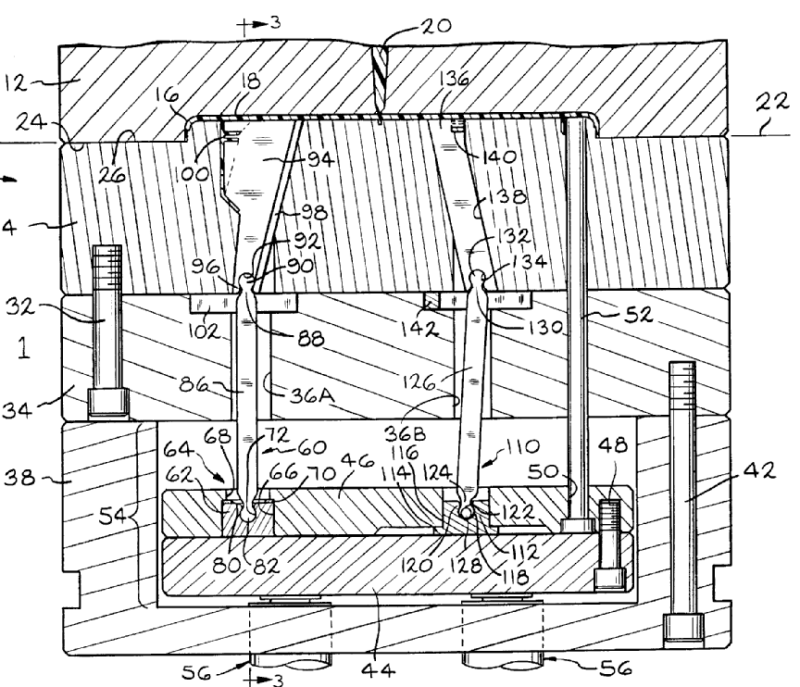 3
20
12
18
136
16
22
24
26
100
94
140
138
98
92
132
4
96
90
134
32
102
142
52
88
130
1
86
36A
126
34
36B
72
68
60
110
64
116
48
38
66
70
46
114
124
50
62
42
54
122
80
82
120
128
112
118
56
3
44
56